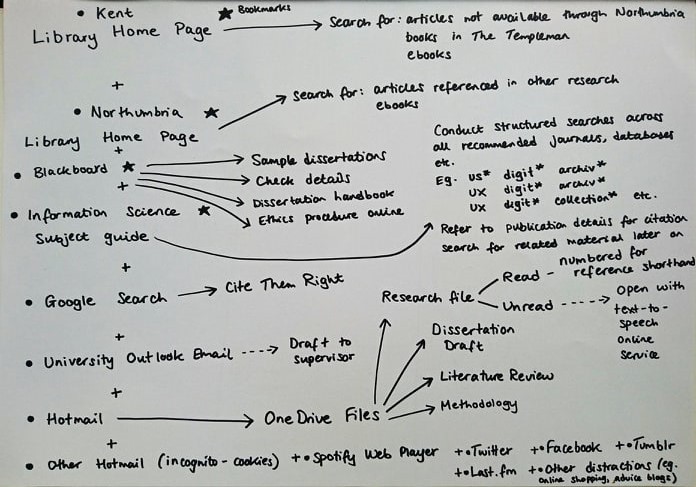 • Kent ★ Bookmarks
Library Home Page → Search for: articles not available through Northumbria
books in The Templeman
ebooks
+
• Northumbria ★
Library Home Page → Search for: articles referenced in other research
ebooks
+
• Blackboard ★ → Sample dissertations
→ Check details
→ Dissertation handbook
→ Ethics procedure online
+
• Information Science ★
Subject guide
Conduct structured searches across
all recommended journals, databases
etc.
Eg. us* digit* archiv*
UX digit* archiv*
UX digit* collection* etc.
Refer to publication details for citation
search for related material later on
+
• Google Search → Cite Them Right
+
• University Outlook Email ---> Draft to
supervisor
+
• Hotmail → OneDrive Files
Research file
Read - numbered for
reference shorthand
Unread ----> Open with
text-to-
speech
online
service
Dissertation
Draft
Literature Review
Methodology
+
• Other Hotmail (incognito - cookies) +• Spotify Web Player +• Twitter +• Facebook +• Tumblr
+• Last.fm +• Other distractions (eg.
online shopping, advice blogs)